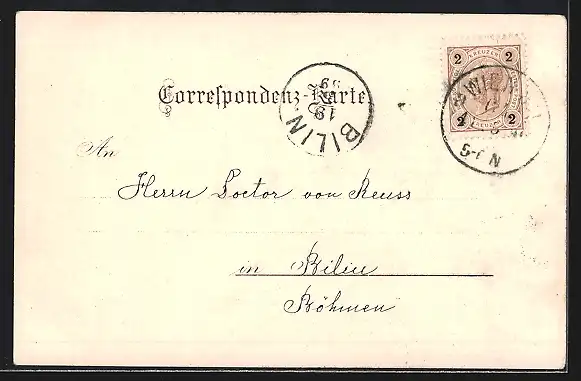 Correspondenz-Karte
2 KREUZER 2
2 2
WIEN
5-6 N
BILIN
An
Herrn Doctor von Reuss
in Bilin
Böhmen